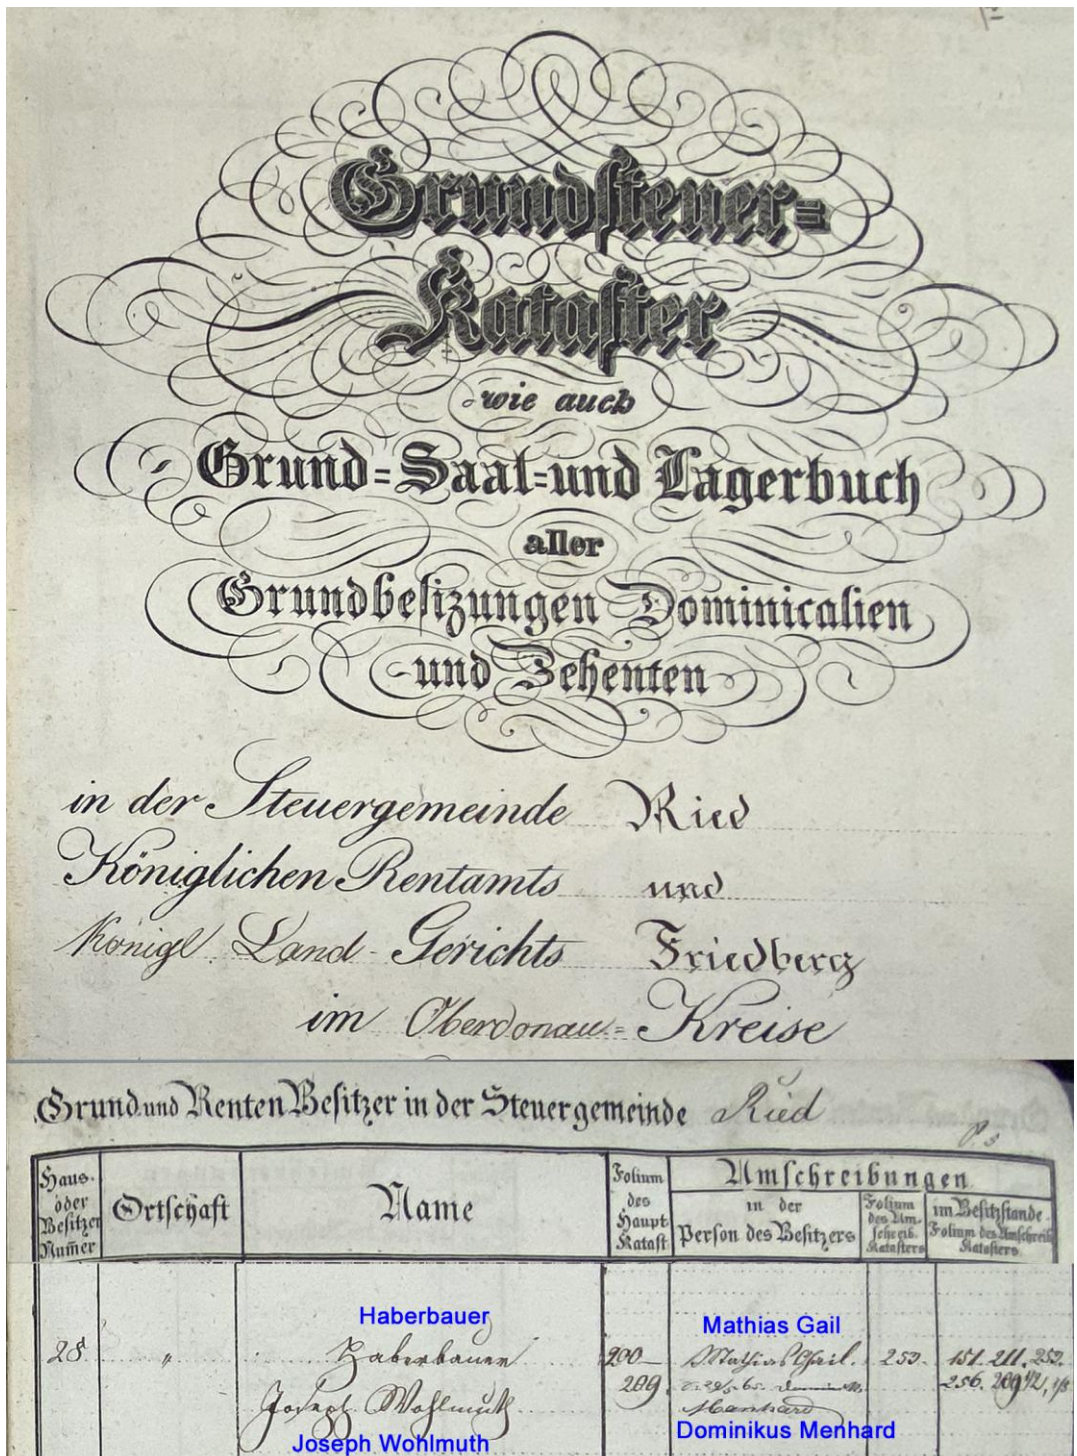 Grundsteuer=
Kataster
wie auch
Grund=Saal=und Lagerbuch
aller
Grundbesizungen Dominicalien
und Zehenten
in der Steuergemeinde Ried
Königlichen Rentamts und
Königl. Land-Gerichts Friedberg
im Oberdonau=Kreise
Grund und Renten Besitzer in der Steuergemeinde Ried
Haus- oder Besitzer Num̅er
Ortschaft
Name
Folium des Haupt Katast
Umschreibungen
in der Person des Besitzers
Folium des Umschreib. Katasters
im Besitzstande Folium des Umschreib Katasters
Haberbauer
Mathias Gail
28. " Haberbauer 200 Mathias Gail. 253. 151. 211. 252.
209 256.
Joseph Wohlmuth Menhard
Joseph Wohlmuth
Dominikus Menhard